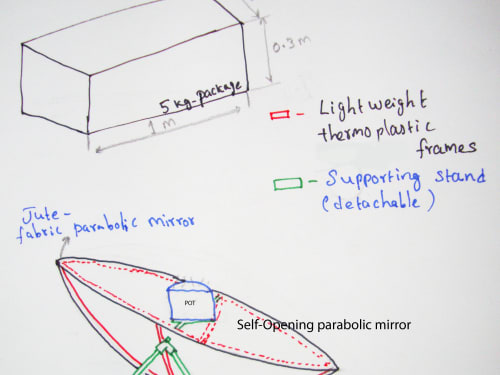 0.3m
5 kg-package
1 m
Lightweight
thermoplastic
frames
Supporting stand
(detachable)
Jute-
fabric parabolic mirror
POT
Self-Opening parabolic mirror